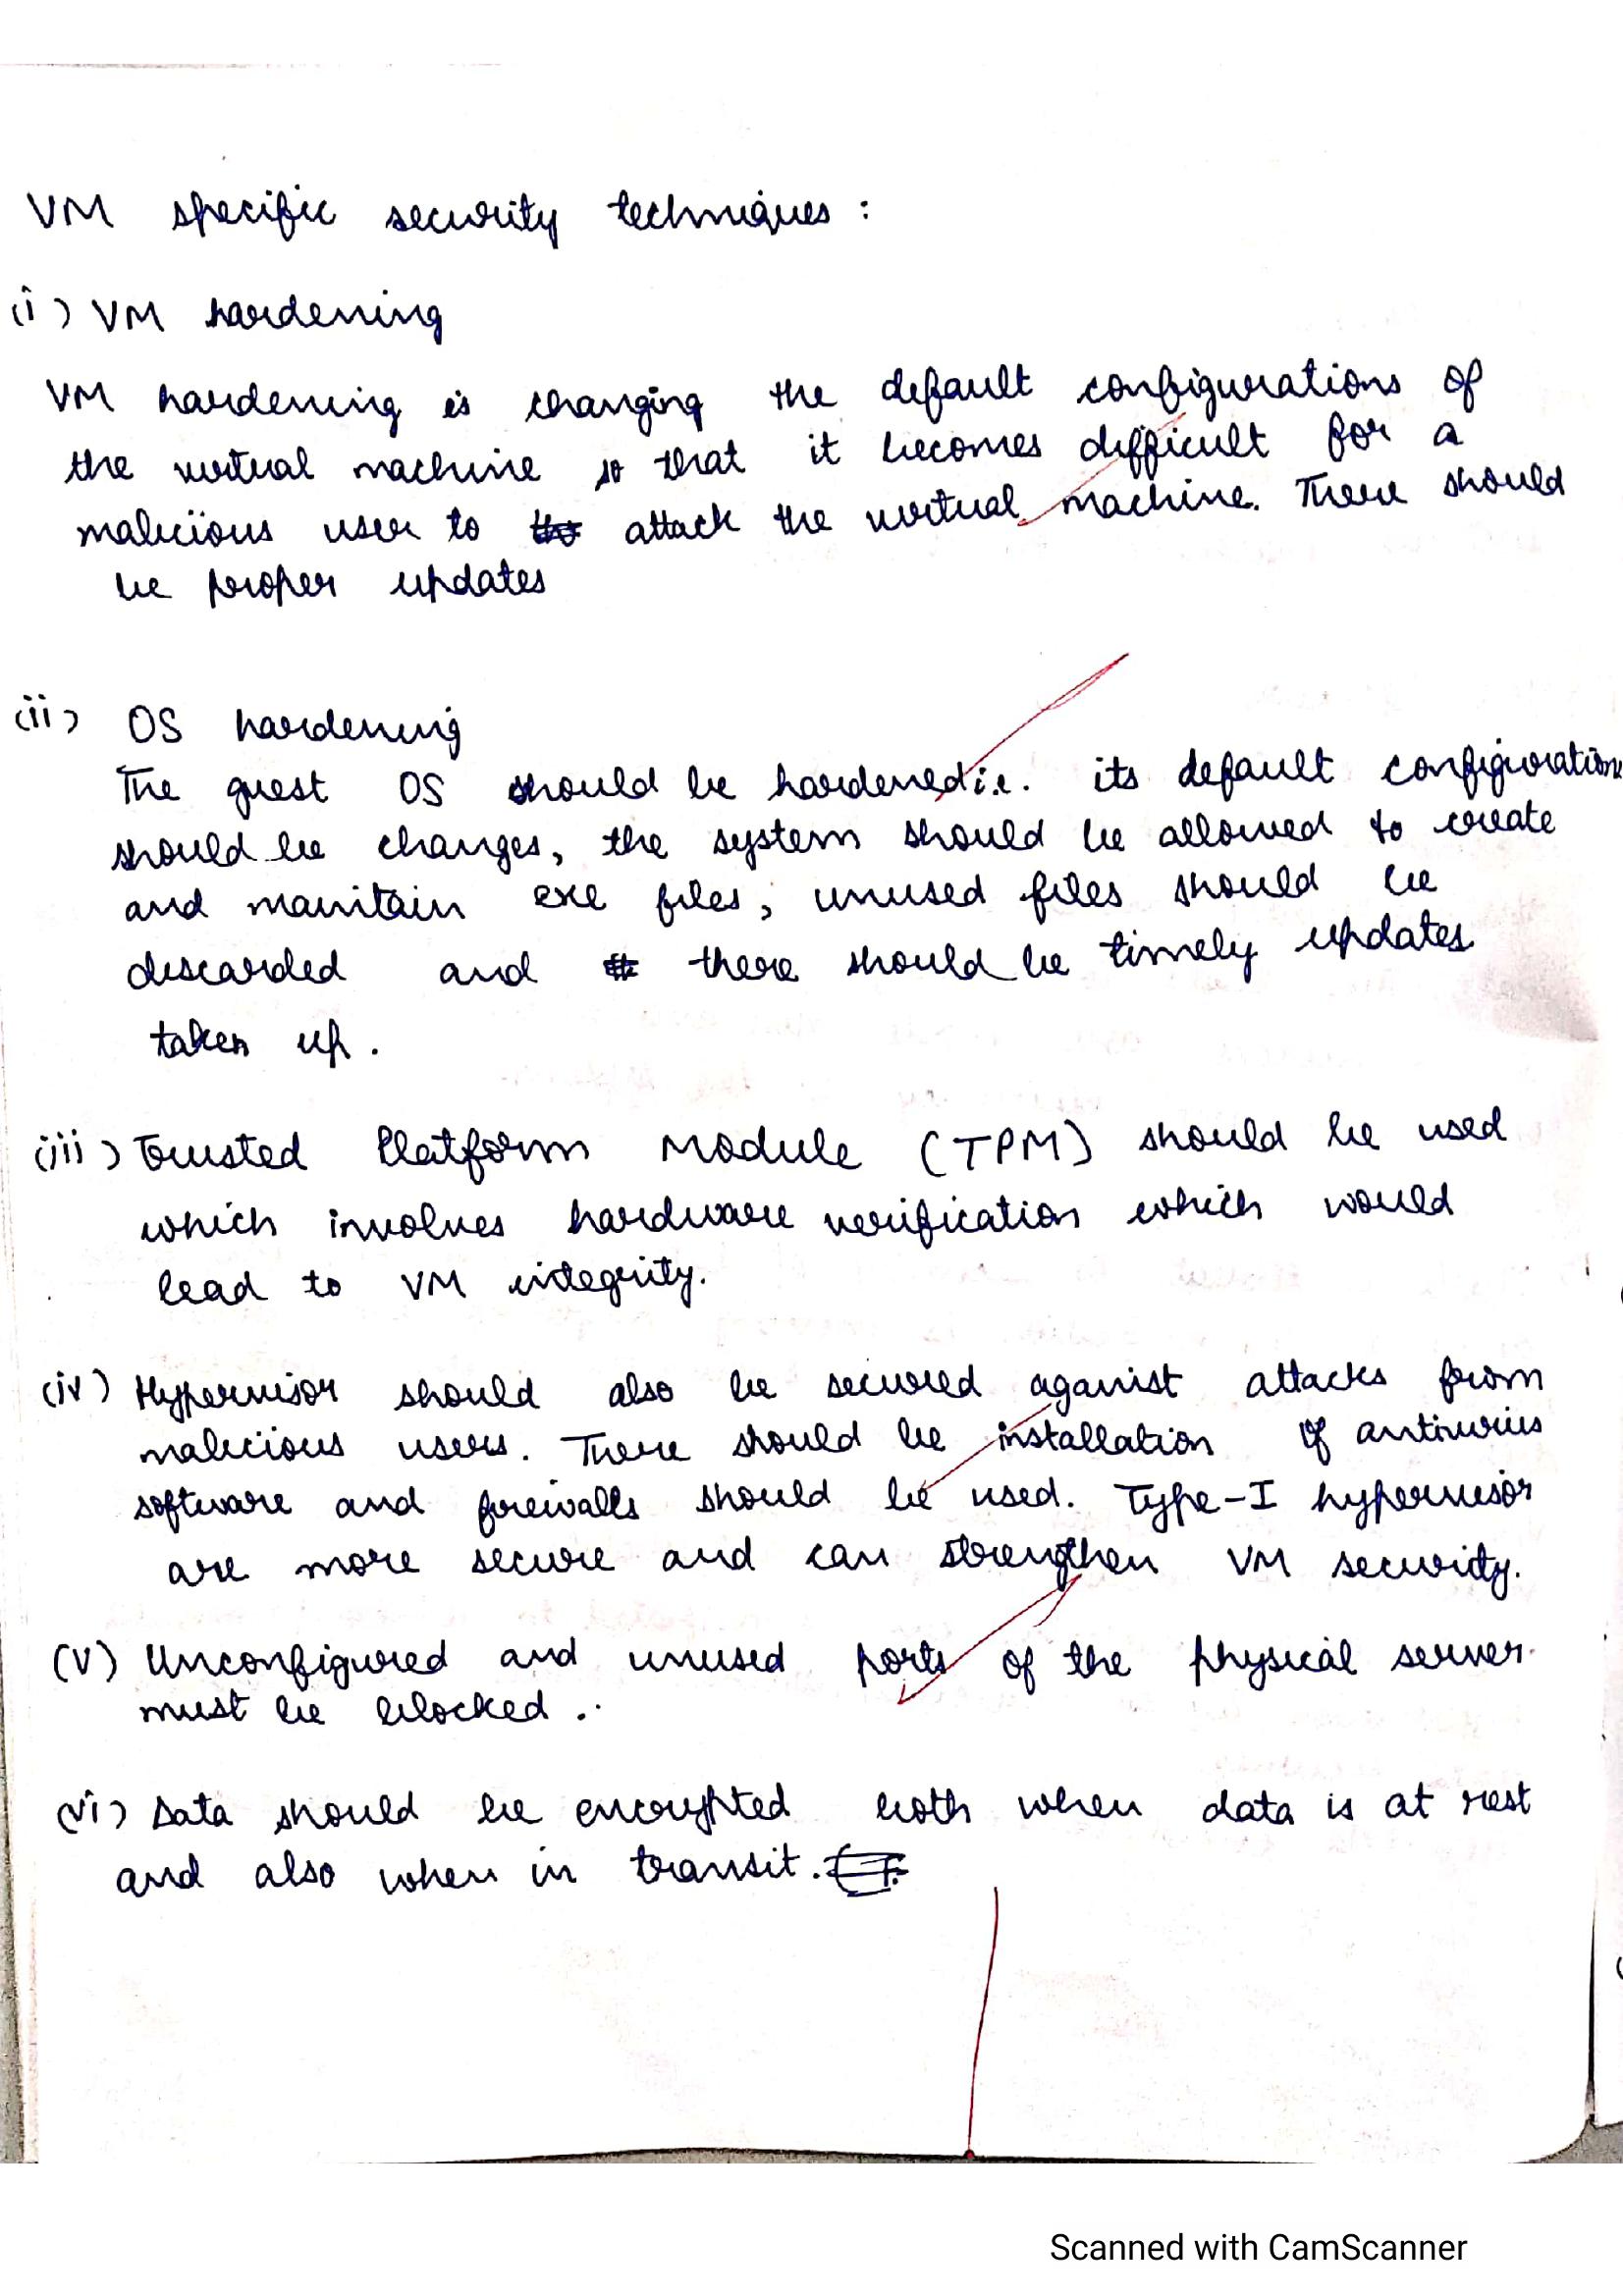 VM specific security techniques :
(i) VM hardening
VM hardening is changing the default configurations of
the virtual machine so that it becomes difficult for a
malicious user to attack the virtual machine. There should
be proper updates
(ii) OS hardening
The guest OS should be hardened i.e. its default configurations
should be changes, the system should be allowed to create
and manitain exe files, unused files should be
discarded and there should be timely updates
taken up.
(iii) Trusted Platform Module (TPM) should be used
which involves hardware verification which would
lead to VM integrity.
(iv) Hypervisor should also be secured aganist attacks from
malicious users. There should be installation of antivirus
software and firewalls should be used. Type-I hypervisor
are more secure and can strengthen VM security.
(v) Unconfigured and unused ports of the physical server
must be blocked.
(vi) Data should be encrypted both when data is at rest
and also when in transit.
Scanned with CamScanner